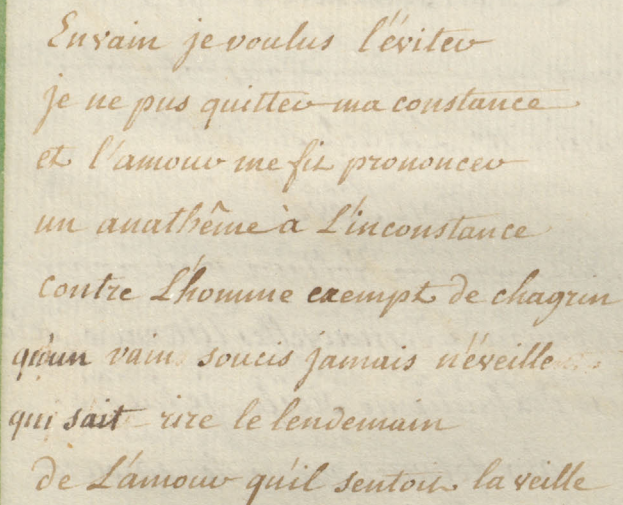 Envain je voulus l'éviter
je ne pus quitter ma constance
et l'amour me fit prononcer
un anathême à L'inconstance
contre L'homme exempt de chagrin
qu'un vain soucis jamais n'éveille
qui sait rire le lendemain
de L'amour qu'il sentoit la veille